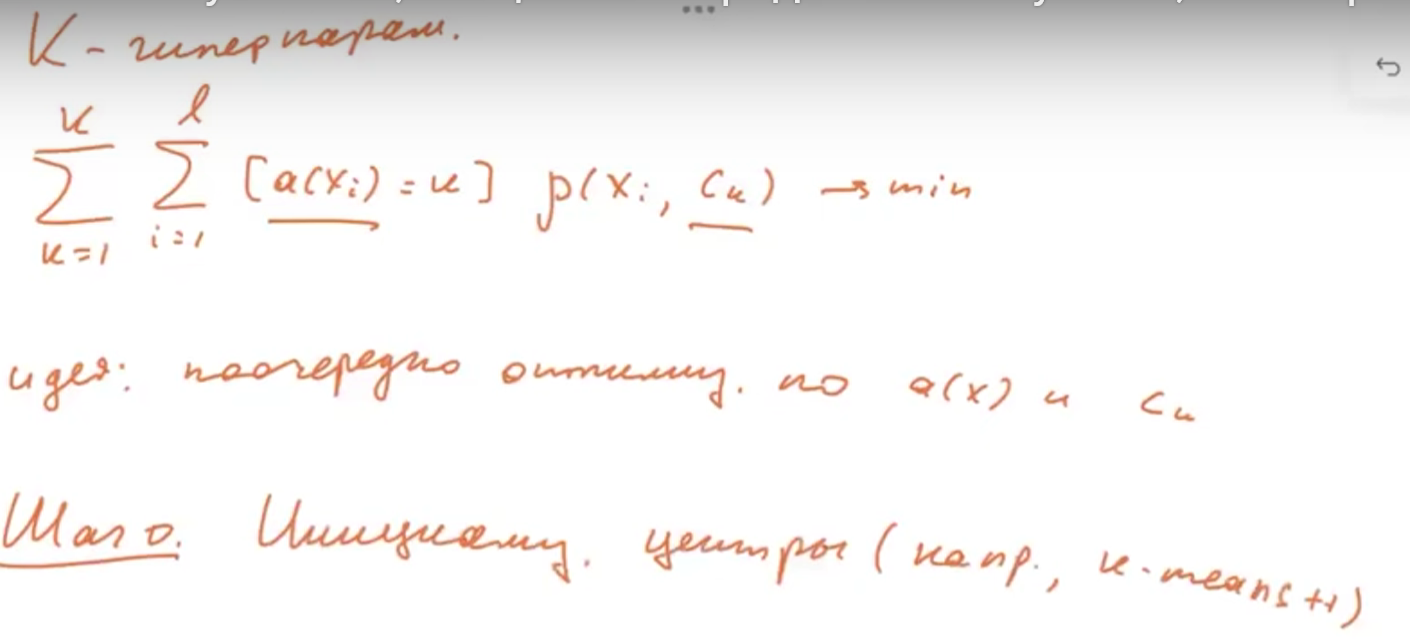 K - гиперпарам.
K l
∑ ∑ [a(xᵢ) = k] ρ(xᵢ, cₖ) → min
k=1 i=1
идея: поочередно оптимиз. по a(x) и cₖ
Шаг 0. Инициализ. центры (напр., k-means++)